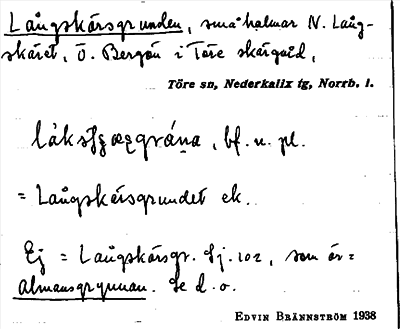 Långskärsgrunden, småholmar N. Lång-
skäret, Ö. Bergön i Töre skärgård,
Töre sn, Nederkalix tg, Norrb. l.
bf. n. pl.
= Långskärsgrundet ek.
Ej = Långskärsgr. Sj. 102, som är =
Almansgrynnan. Se d. o.
EDVIN BRÄNNSTRÖM 1938